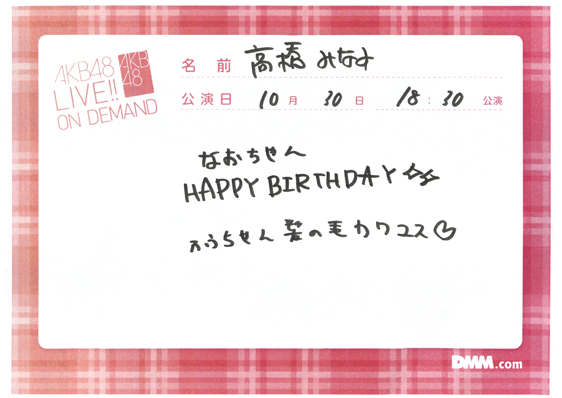 AKB48
LIVE!!
ON DEMAND
AKB
48
名前 高橋みなみ
公演日 10月30日 18:30公演
なおちゃん
HAPPY BIRTHDAY
ふうちゃん髪の毛カワユス
DMM.com